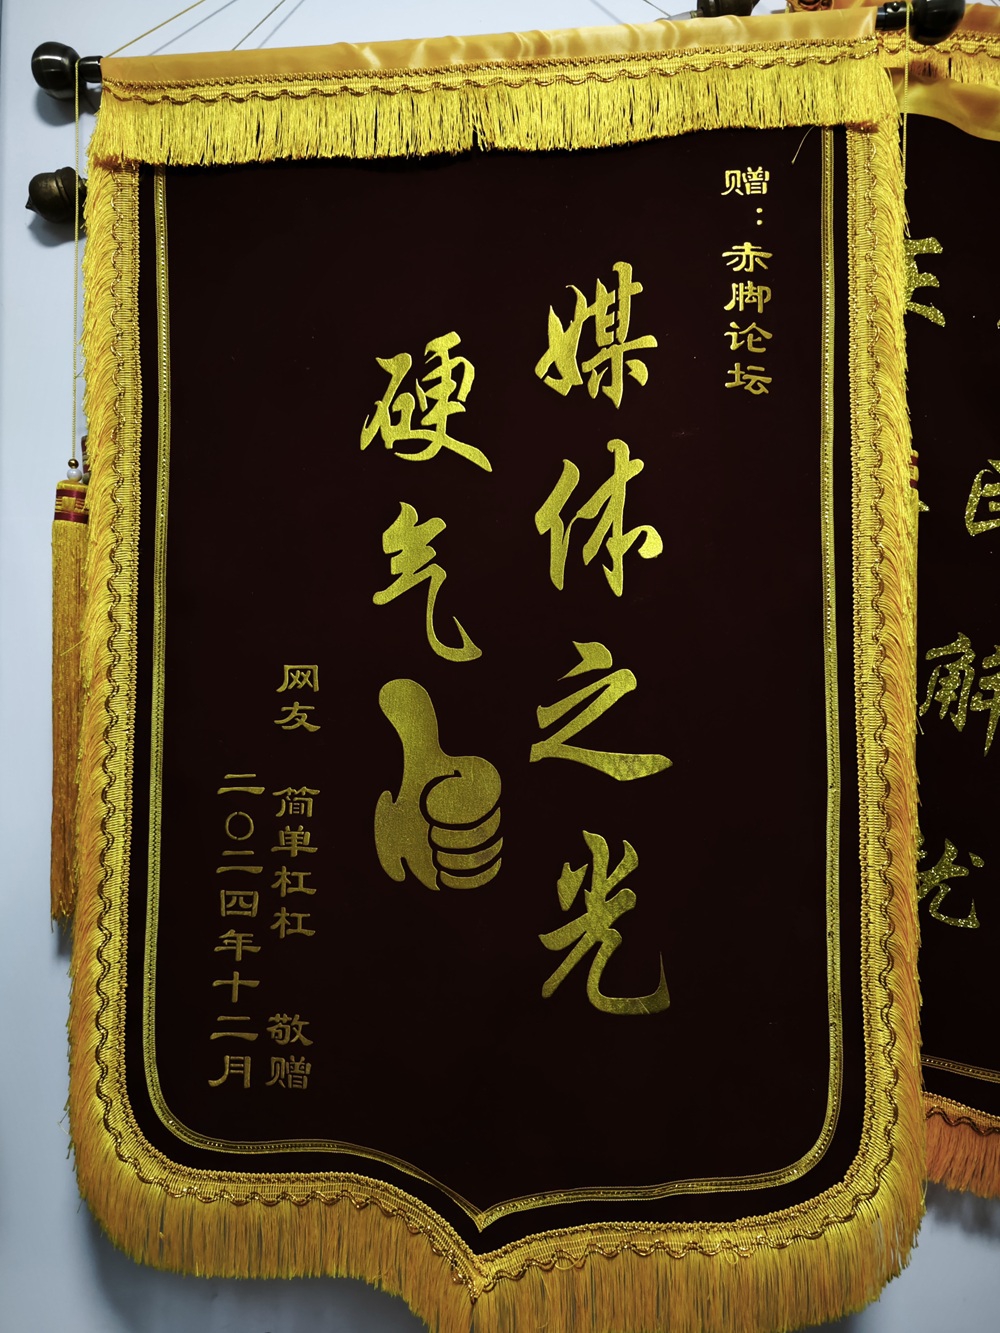 赠：赤脚论坛
媒体之光
硬气
网友 简单杠杠 敬赠
二〇二四年十二月
解
光